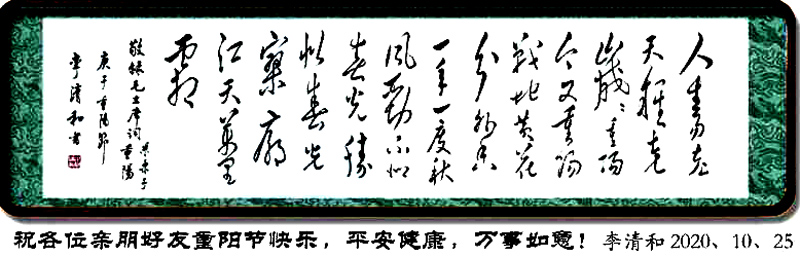 人生易老
天難老
歲々重陽
今又重陽
戰地黃花
分外香
一年一度秋
風勁不似
春光勝
似春光
寥廓
江天萬里
霜
敬錄毛主席詞采桑子
重陽
庚子重陽節
李清和書
祝各位亲朋好友重阳节快乐，平安健康，万事如意！李清和2020、10、25